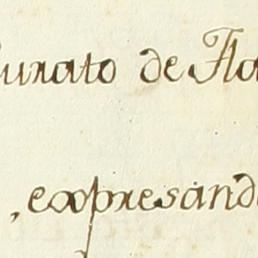 urato de Fla
, expresand